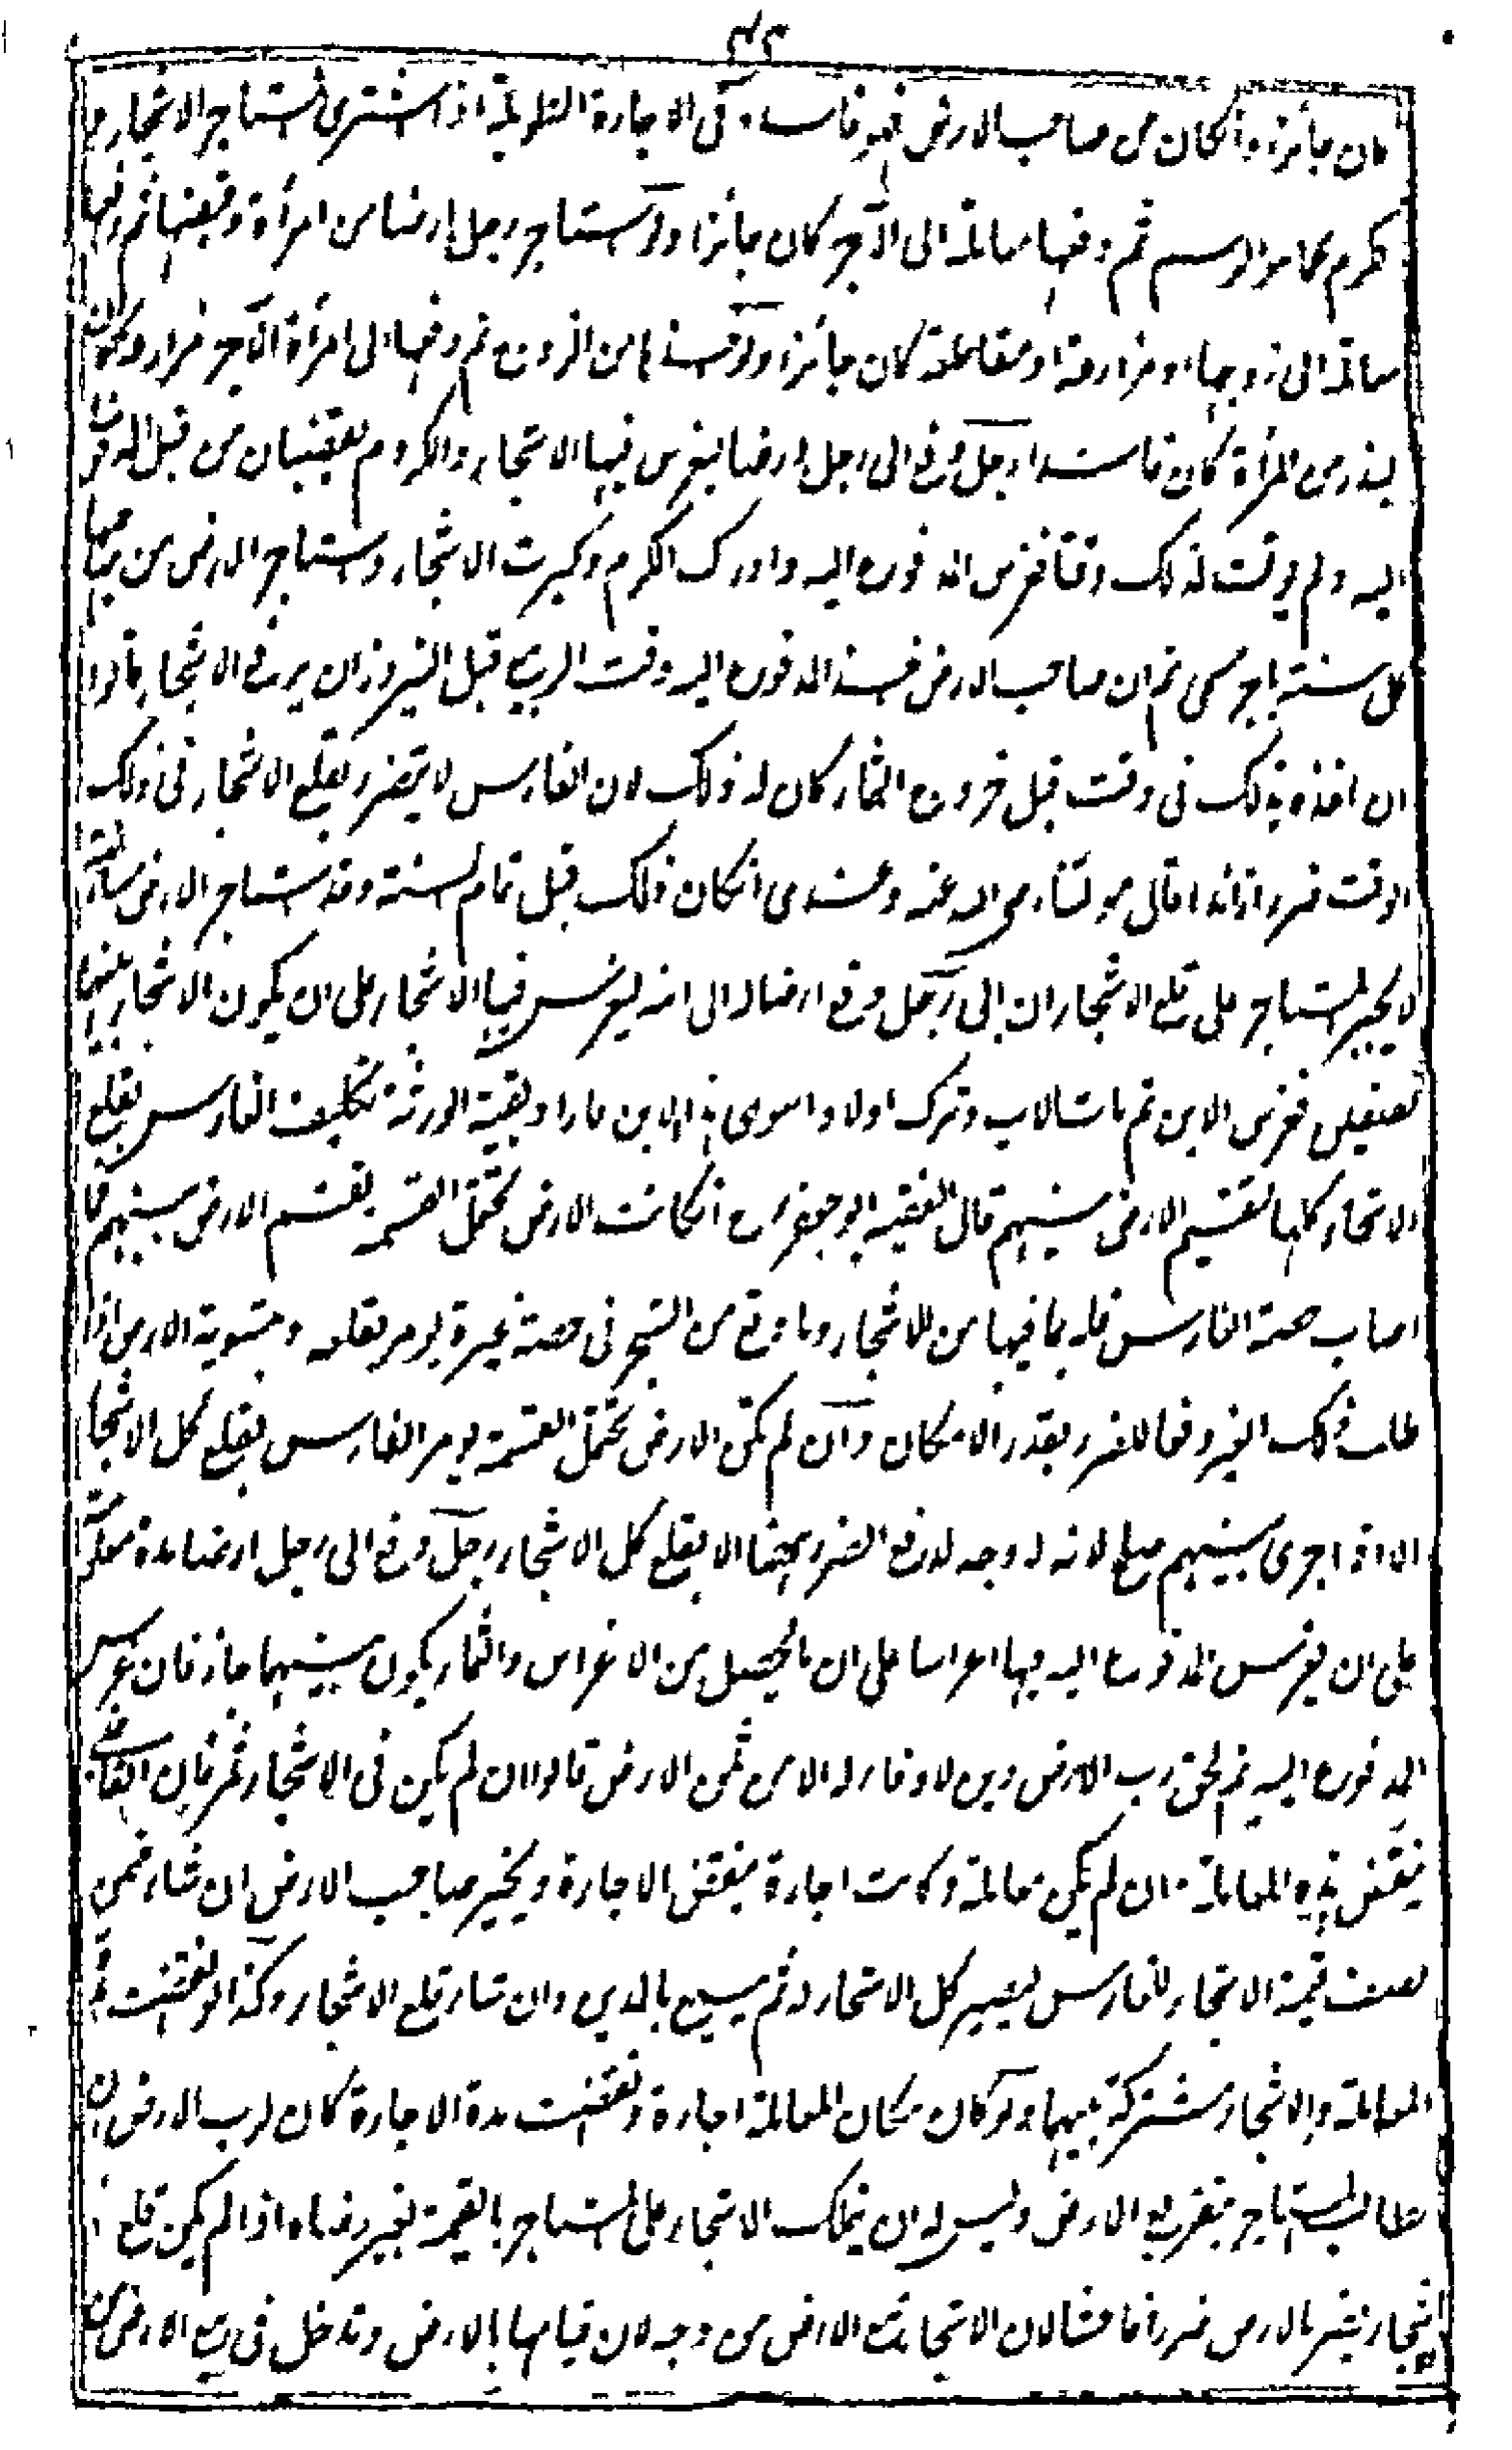 كان جائزا وان كان من صاحب الارض فهو فاسد وفي الاجارة الطويلة اذا اشترى المستاجر الاشجار و
الكرم كما هو الرسم ثم دفعها معاملة الى الآجر كان جائزا ولو استاجر رجل ارضا من امرأة وقبضها ثم دفعها
معاملة الى زوجها او مزارعة او مقاطعة كان جائزا ولو اخذها من الزوج ثم دفعها الى امرأة الآجر مزارعة
البذر من المرأة كان فاسدا رجل دفع الى رجل ارضا ليغرس فيها الاشجار والكروم بقضبان من قبل المدفوع
اليه ولم يوقت لذلك وقتا فغرس المدفوع اليه وادرك الكرم وكبرت الاشجار واستاجر الارض من صاحبها
كل سنة باجر مسمى ثم ان صاحب الارض اخذ المدفوع اليه وقت الربيع قبل النيروز ان يرفع الاشجار قالوا
ان اخذه بذلك في وقت قبل خروج الثمار كان له ذلك لان الغارس لا يتضرر بقلع الاشجار في ذلك
الوقت ضررا زائدا قال مولانا رضى الله عنه وعندى ان كان ذلك قبل تمام السنة وقد استاجر الارض مسانهة
لا يجبر المستاجر على قلع الاشجار ان ابى رجل دفع ارضا له الى ابنه ليغرس فيها الاشجار على ان يكون الاشجار بينهما
نصفين فغرس الابن ثم مات الاب وترك اولادا سوى هذا الابن فاراد بقية الورثة تكليف الغارس بقلع
الاشجار كلها لتقسيم الارض بينهم قال الفقيه ابو جعفر رح ان كانت الارض تحتمل القسمة يقسم الارض بينهم فما
اصاب حصة الغارس فله بما فيها من الاشجار وما وقع من الشجر في حصة غيره يؤمر بقلعه وبتسوية الارض اذا
طلب ذلك الغير دفعا للضرر بقدر الامكان وان لم تكن الارض تحتمل القسمة يؤمر الغارس بقلع كل الاشجار
الا اذا جرى بينهم صلح لانه لا وجه لدفع الضرر ههنا الا بقلع كل الاشجار رجل دفع الى رجل ارضا مدة معلومة
على ان يغرس المدفوع اليه فيها اغراسا على ان ما يحصل من الاغراس والثمار يكون بينهما جاز فان غرس
المدفوع اليه ثم لحق رب الارض دين لا وفاء له الا من ثمن الارض قالوا ان لم يكن في الاشجار ثمر فان القاضي
ينقض هذه المعاملة وان لم يكن معاملة وكانت اجارة ينقض الاجارة ويخير صاحب الارض ان شاء ضمن
نصف قيمة الاشجار للغارس ليصير كل الاشجار له ثم يبيع بالدين وان شاء قلع الاشجار وكذا لو انقضت مدة
المعاملة والاشجار مشتركة بينهما ولو كان مكان المعاملة اجارة وانقضت مدة الاجارة كان لرب الارض ان
يطالب المستاجر بتفريغ الارض وليس له ان يتملك الاشجار على المستاجر بالقيمة بغير رضاه اذا لم يكن قلع
الاشجار يضر بالارض ضررا فاحشا لان الاشجار تبع الارض من وجه لان قيامها بالارض وتدخل في بيع الارض من